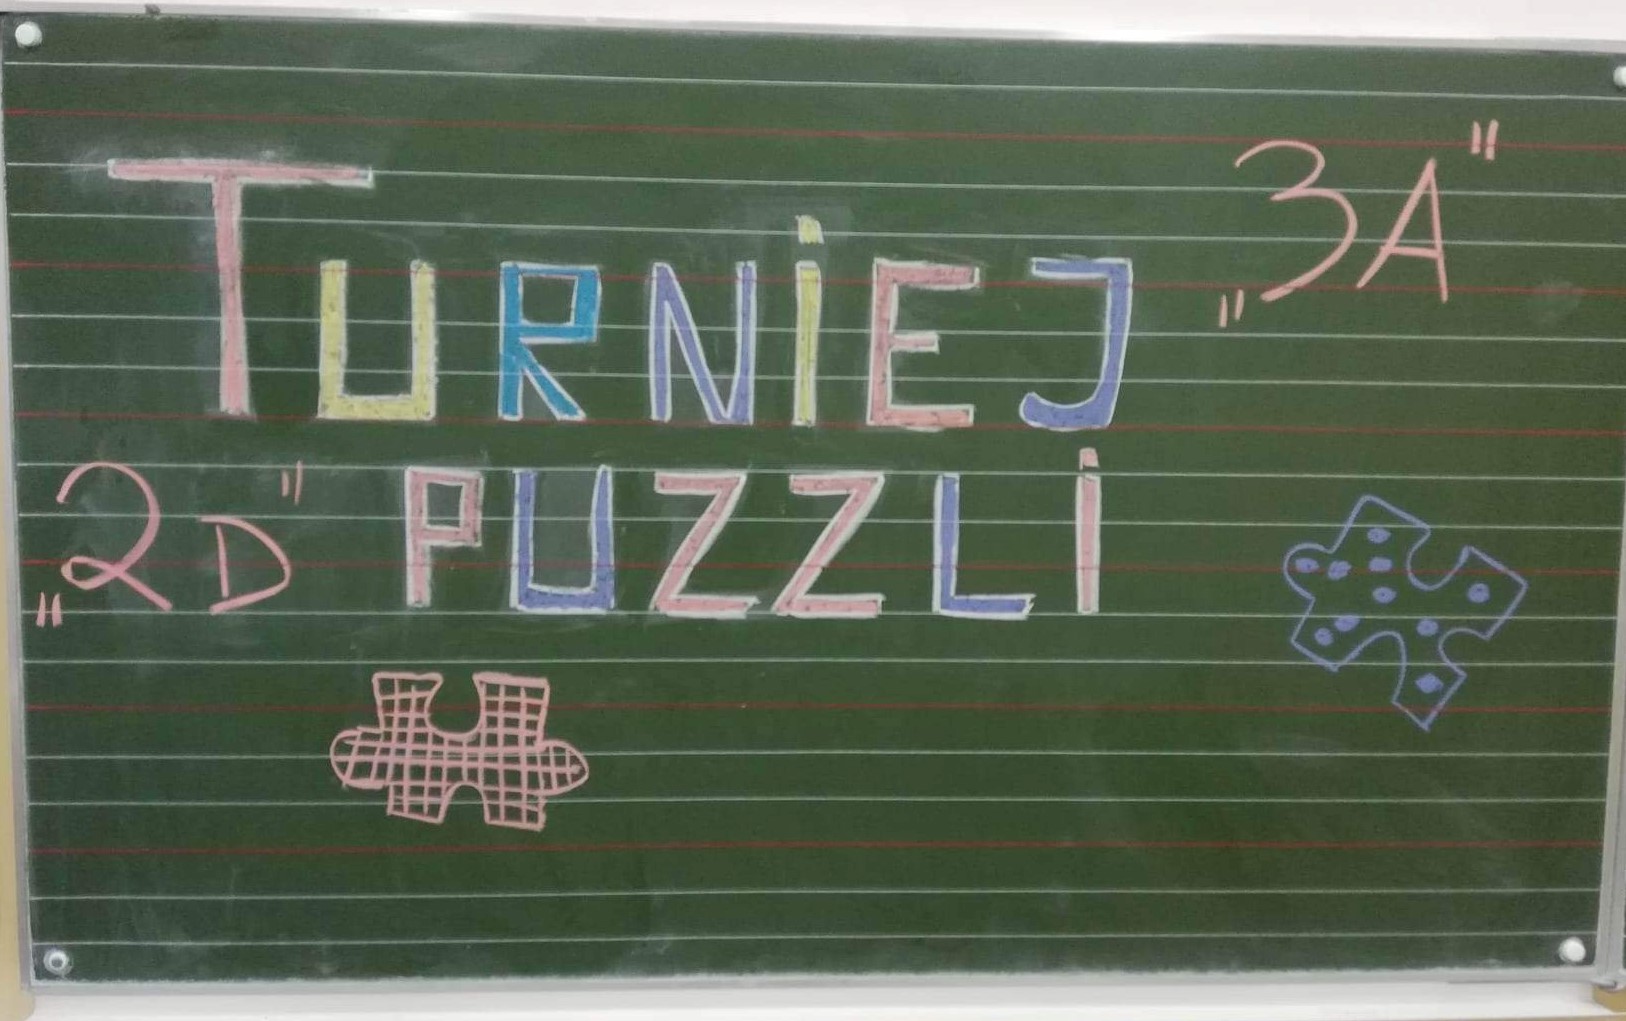 TURNiEJ „3A"
„2D" PUZZLi